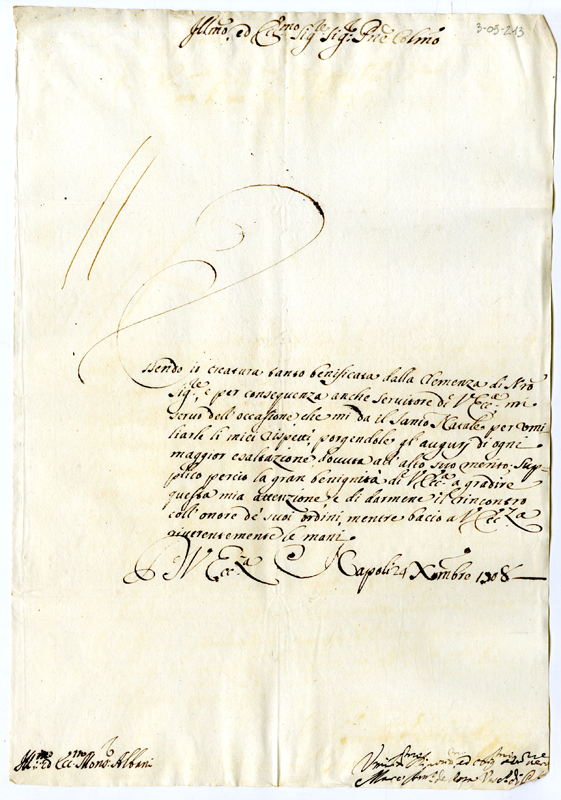 Illmo, ed Ecc.mo Sig.re Sig.r Prne Colmo
3-05-213
Essendo io creatura tanto beneficata dalla Clemenza di Nro
Sig.re, e per conseguenza anche servitore di V. Ecc.a mi
servo dell'occasione che mi da il Santo Natale per umi
liarle li miei rispetti, porgendole gl'augurj di ogni
maggior esaltazione dovuta all'alto suo merito; Sup-
plico perciò la gran benignità di V. Ecc.a a gradire
questa mia attenzione e di darmene il rincontro
coll'onore de' suoi ordini, mentre bacio a V. Ecc.za
riverentemente le mani.
D V. Ecc.za Napoli 24 Xmbre 1708
Ill.mo ed Ecc.mo Mons.r Albani